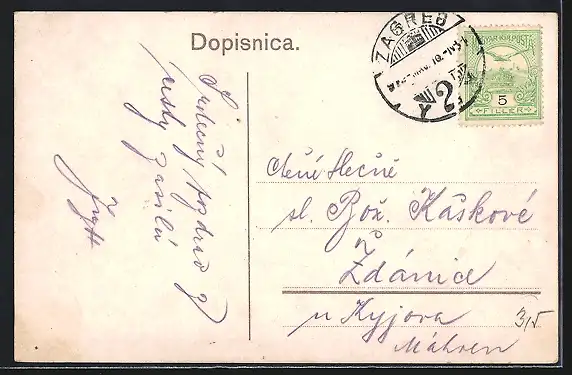 Dopisnica.
ZAGREB
2
MAGYAR KIR. POSTA
5
FILLER
Srdečný pozdrav z
cesty zasílá
Ctěné slečně
sl. Bož. Káškové
Ždánice
u Kyjova
Mähren
315